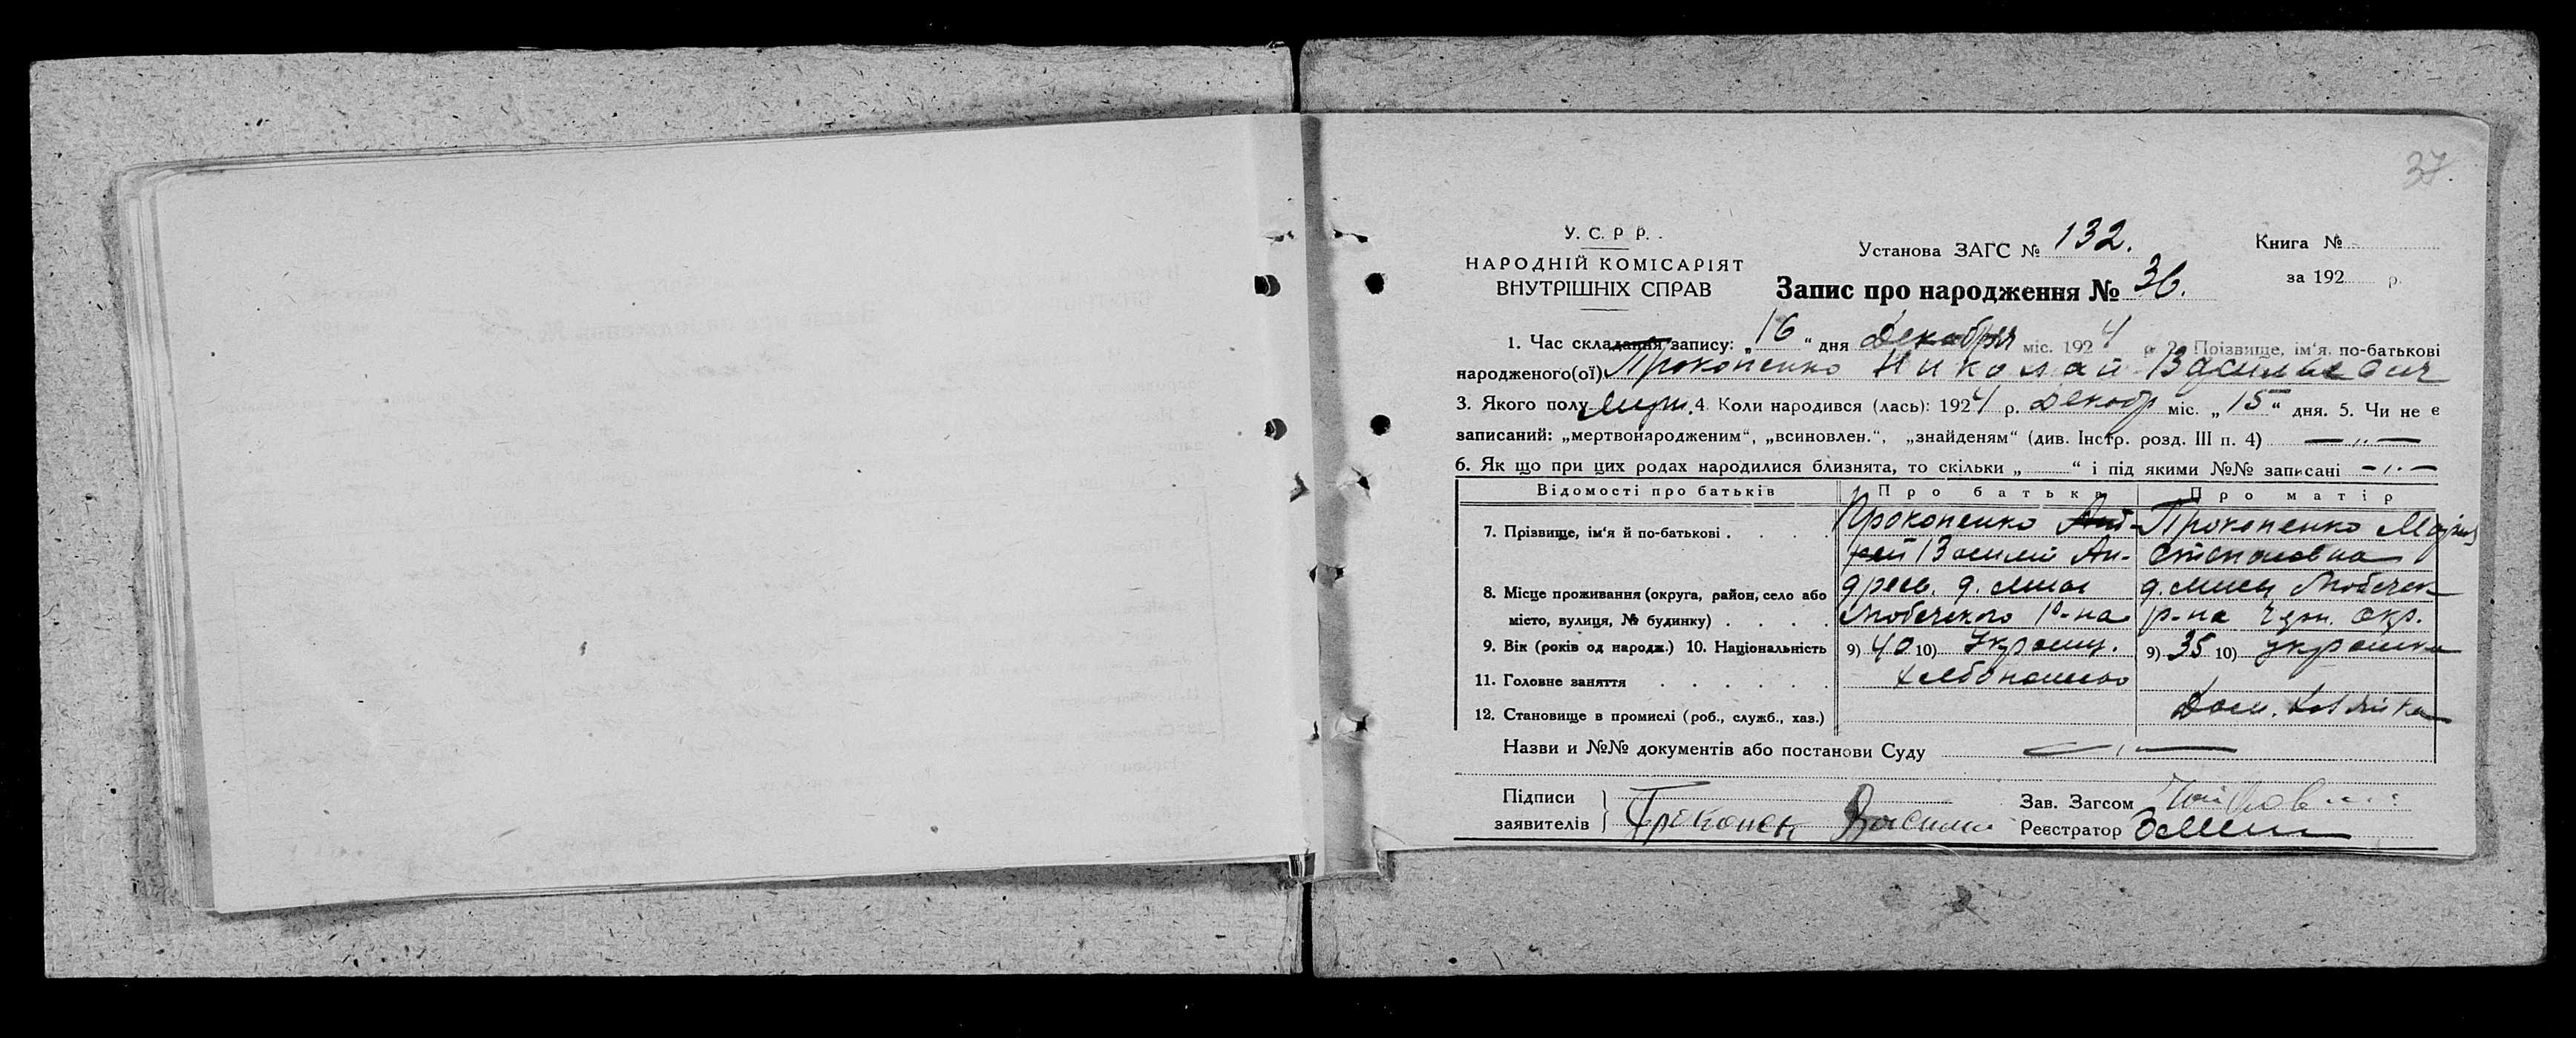 37.
У. С. Р Р.
НАРОДНІЙ КОМІСАРІЯТ
ВНУТРІШНІХ СПРАВ
Установа ЗАГС № 132.
Книга №
за 192 р.
Запис про народження № 36.
1. Час складання запису: „16“ дня Декабря міс. 1924 р. 2. Поізвище, ім‘я, по-батькові
народженого(ої) Прокопенко Николай Васильевич
3. Якого полу Муж. 4. Коли народився (лась): 1924 р. Декабр міс. „15“ дня. 5. Чи не є
записаний: „мертвонародженим“, „всиновлен.“, „знайденям“ (див. Інстр. розд. III п. 4) — „ —
6. Як що при цих родах народилися близнята, то скільки „ “ і під якими №№ записані — „ —
Відомості про батьків Про батька Про матір
7. Прізвище, ім‘я й по-батькові . . . . Прокопенко Анд- Прокопенко Мария
рей Василий Ан- Степановна
8. Місце проживання (округа, район, село або дреев. д. д.
місто, вулиця, № будинку) . . . . Любечского р-на р-на Черн. Окр.
9. Вік (років од народж.) 10. Національність 9) 40 10) Украин. 9) 35 10) украинка
11. Головне заняття . . . . . . хлебопашество
12. Становище в промислі (роб., служб., хаз.) Дом. хозяйка
Назви и №№ документів або постанови Суду — „ —
Підписи
заявителів Прокопек Василий
Зав. Загсом
Реєстратор